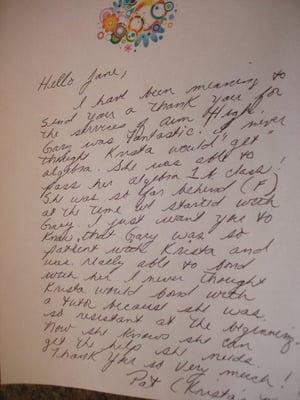 Hello Jane,
I have been meaning to
send you a thank you for
the services of Aim High.
Gary was fantastic. I never
thought Krista would "get"
algebra. She was able to
pass her algebra 1A class!
She was so far behind (F)
at the time we started with
Gary. I just want you to
know that Gary was so
patient with Krista and
was really able to bond
with her. I never thought
Krista would bond with
a tutor because she was
so resistant at the beginning.
Now she knows she can
get the help she needs.
Thank you so very much!
Pat (Krista's